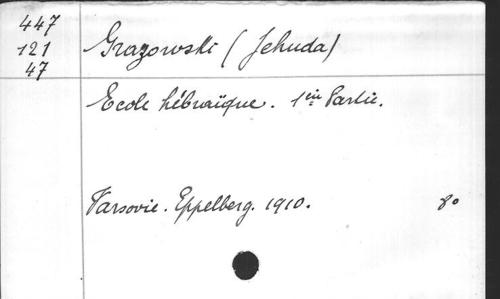 447
121
47
Grazowski (Jehuda)
Ecole hébraïque. 1ère Partie.
Varsovie. Eppelberg. 1910. 8o